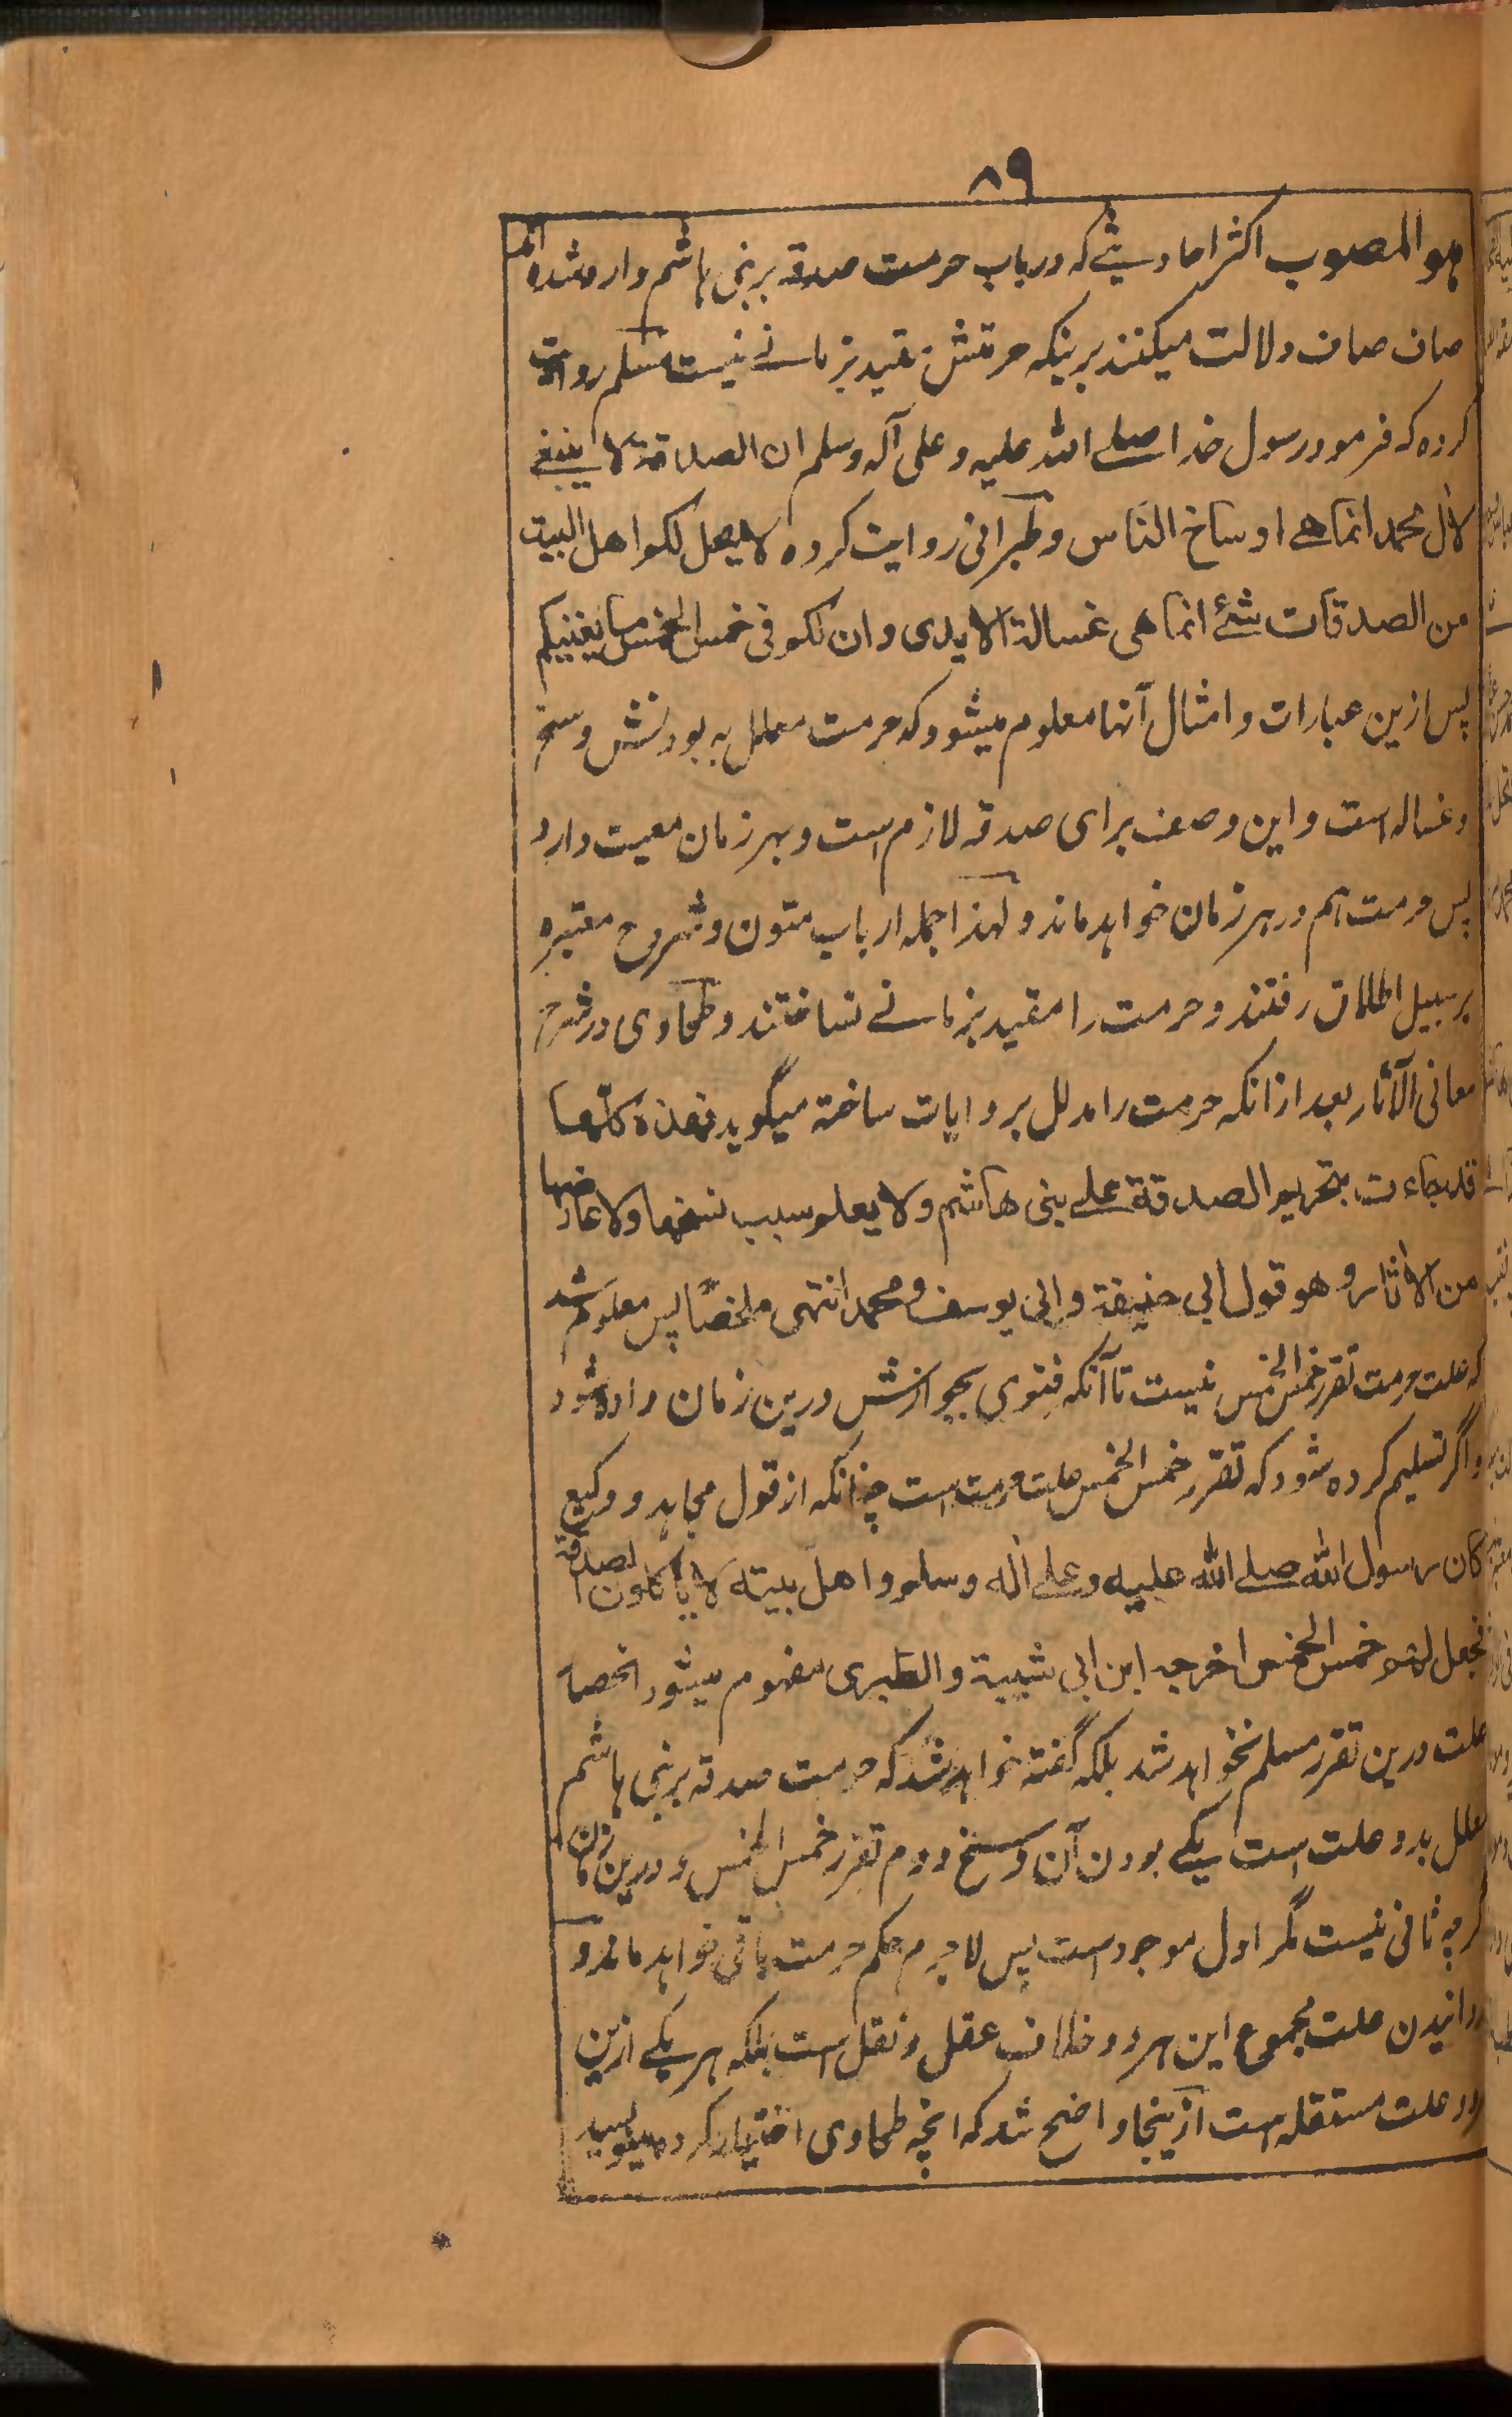 ٨٩
هو المصوب اکثر احادیثے که در باب حرمت صدقه بر بنی هاشم وارد شده اند
صاف صاف دلالت میکنند برینکه حرمتش مقید بزمانے نیست مسلم روایت
کرده که فرمود رسول خدا صلے الله علیه و علی آله وسلم ان الصدقة لا ینبغے
لآل محمد انما هے اوساخ الناس و طبرانی روایت کرده لا یحل لکم اهل البیت
من الصدقات شئ انما هی غسالة الایدی وان لکم فی خمس الخمس ما یغنیکم
پس ازین عبارات و امثال آنها معلوم میشود که حرمت معلل به بودنش وسخ
و غساله است و این وصف برای صدقه لازم است و بهر زمان معیت دارد
پس حرمت هم در هر زمان خواهد ماند و لهذا جمله ارباب متون و شروح معتبره
بر سبیل اطلاق رفتند و حرمت را مقید بزمانے نساختند و طحاوی در شرح
معانی الآثار بعد ازانکه حرمت را مدلل بروایات ساخته میگوید فهذه کلها
قد جاءت بتحریم الصدقة علے بنی هاشم ولا یعلم سبب نسخها ولا عارضها
من الآثار وهو قول ابی حنیفة وابی یوسف ومحمد انتهی ملخصًا پس معلوم شد
که علت حرمت تقرر خمس الخمس نیست تا آنکه فتوی بجوازش درین زمان داده شود
و اگر تسلیم کرده شود که تقرر خمس الخمس علت حرمت است چنانکه از قول مجاهد و وکیع
کان رسول الله صلے الله علیه وعلے آله وسلم واهل بیته لا یاکلون الصدقة
فجعل لهم خمس الخمس اخرجه ابن ابی شیبة والطبری مفهوم میشود انحصار
علت درین تقرر مسلم نخواهد شد بلکه گفته خواهد شد که حرمت صدقه بر بنی هاشم
معلل بدو علت است یکے بودن آن وسخ دوم تقرر خمس الخمس و درین زمان
گرچه ثانی نیست مگر اول موجود است پس لا جرم حکم حرمت باقی خواهد ماند و
گردانیدن علت مجموع این هر دو خلاف عقل و نقل است بلکه هر یکے ازین
دو علت مستقله است ازینجا واضح شد که انچه طحاوی اختیار کرده مینویسد